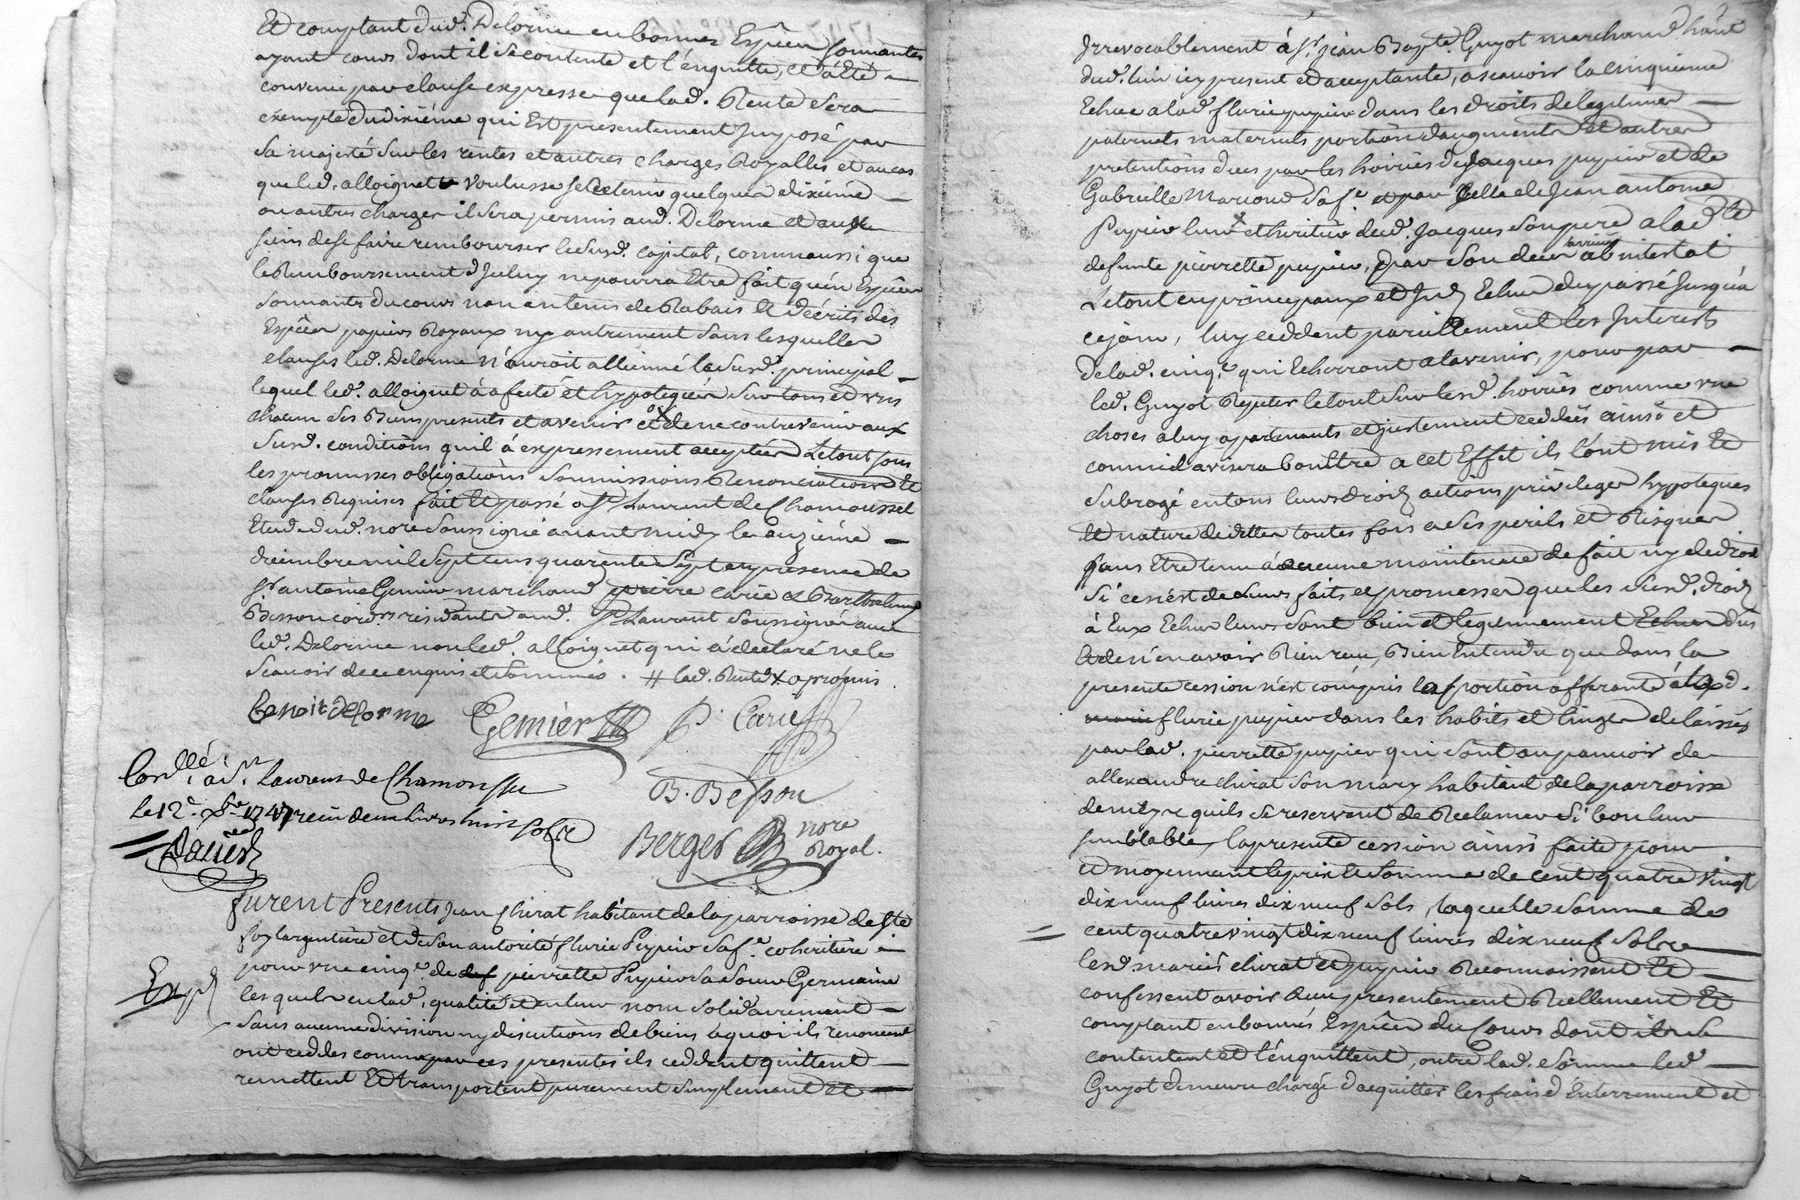 Et comptant dud. Delorme en bonnes Espêces sonnantes
ayant cours dont il se contente et l'enquitte, et a été
convenu par clause expresse que lad. Rente sera
exempte du dixiéme qui Est presentement Imposé par
sa majesté sur les rentes et autres charges Royalles et au cas
que led. alloignet voulusse se Retenir quelques dixiéme
ou autres charges il sera permis aud. Delorme et aux
siens de se faire rembourser lesusd. capital, comme aussi que
le Remboursement d'Iceluy ne pourra Etre fait qu'en Espêces
sonnants du cours non en tems de Rabais et décrits des
Espêces papiers Royaux ny autrement sans lesquelles
clauses led. Delorme n'auroit allienné lasusd. principal
lequel led. alloignet à afecté et hypotequé sur tous et uns
chacun ses Biens presents et avenir et de ne contrevenir aux
susd. conditions qu'il à expressement acceptées Le tout sous
les promesses obligations soumissions Renonciations et
clauses Requises fait et passé a St. Laurent de Chamousset
Etude dud. nore. soussigné avant midy le onziéme
décembre mil sept cens quarente sept en presence de
Sr. antoine Gemier marchand pierre carie & Barthelemy
Besson cord.rs residants aud. St. Laurent soussignés avec
led. Delorme non led. alloignet qui a déclaré ne le
scavoir de ce enquis et sommés . # lad. Rente x apromis
Benoit delorme Gemier P. Carie
Conllé. a St. Laurent de Chamousset
B. Besson
le 12e. xbre 1747 reçu deux livres huit sols
Berger nore Royal.
Furent Presents Jean Chirat habitant de la parroisse de Ste
foy largentiére et de son autorité flurie Pupier sa fe. coheritiére
Exp
pour une cinqe. de def pierrette Pupier sa sœur Germaine
lesquels en lad. qualité et en leur nom solidairement
sans aucune division ny discutions de biens a quoi ils renoncent
ont ceddés comme par ces presentes ils ceddent quittent
remettent Et transportent purement simplement et
Irrevocablement à Sr. jean Bapte. Guyot marchand hant
dud. lieu icy present et acceptante, a scavoir la cinquieme
Echue a lad. flurie pupier dans les droits de legitimes
paternels maternels portion d'augments et autres
pretentions dues par les hoiries de Jacques pupier et de
Gabrielle Marion sa fe. et par celle de Jean antoine
Pupier leur x et heritier dud. Jacques son pere a lad.te
defunte pierrette pupier, par son deces arrivé ab intestat
Le tout en principaux et Int. Echus du passé jusqu'a
ce jour, luy ceddent pareillement les Interests
de lad. cinqe. qui Echerront a l'avenir, pour par
led. Guyot Repeter le tout sur lesd. hoiries comme une
choses a luy apartenants et justement ceddées ainsi et
comme il avisera bon Etre a cet Effet ils l'ont mis et
subrogé en tous leurs droits actions privileges hypoteques
et nature de dettes toutes fois a ses perils et Risques
sans Etre tenu à aucune maintenue de fait ny de droit
si ce n'est de leurs faits et promesses que les susd. droits
à Eux Echus leurs sont bien et legitimement Echus dus
et de n'en avoir Rien reçu, Bien Entendu que dans la
presente cession n'est compris la portion afferante à lad.
marie flurie pupier dans les habits et linges delaissés
par lad. pierrette pupier qui sont au pouvoir de
allexandre chirat son mary habitant de la parroisse
de meys quils se reservent de Reclamer si bon leur
semblable, la presente cession ainsi faite pour
et moyennant le prix et somme de cent quatre vingt
dix neuf livres dix neuf sols, laquelle somme de
cent quatre vingt dix neuf livres dix neuf sols
lesd. mariés chirat et pupier Reconnoissent Et
confessent avoir reçu presentement Réellement Et
comptant en bonnes Espêces du cours dont ils se
contentent et l'enquittent, outre lad. somme led.
Guyot demeure chargé d'acquitter les frais d'Enterrement et